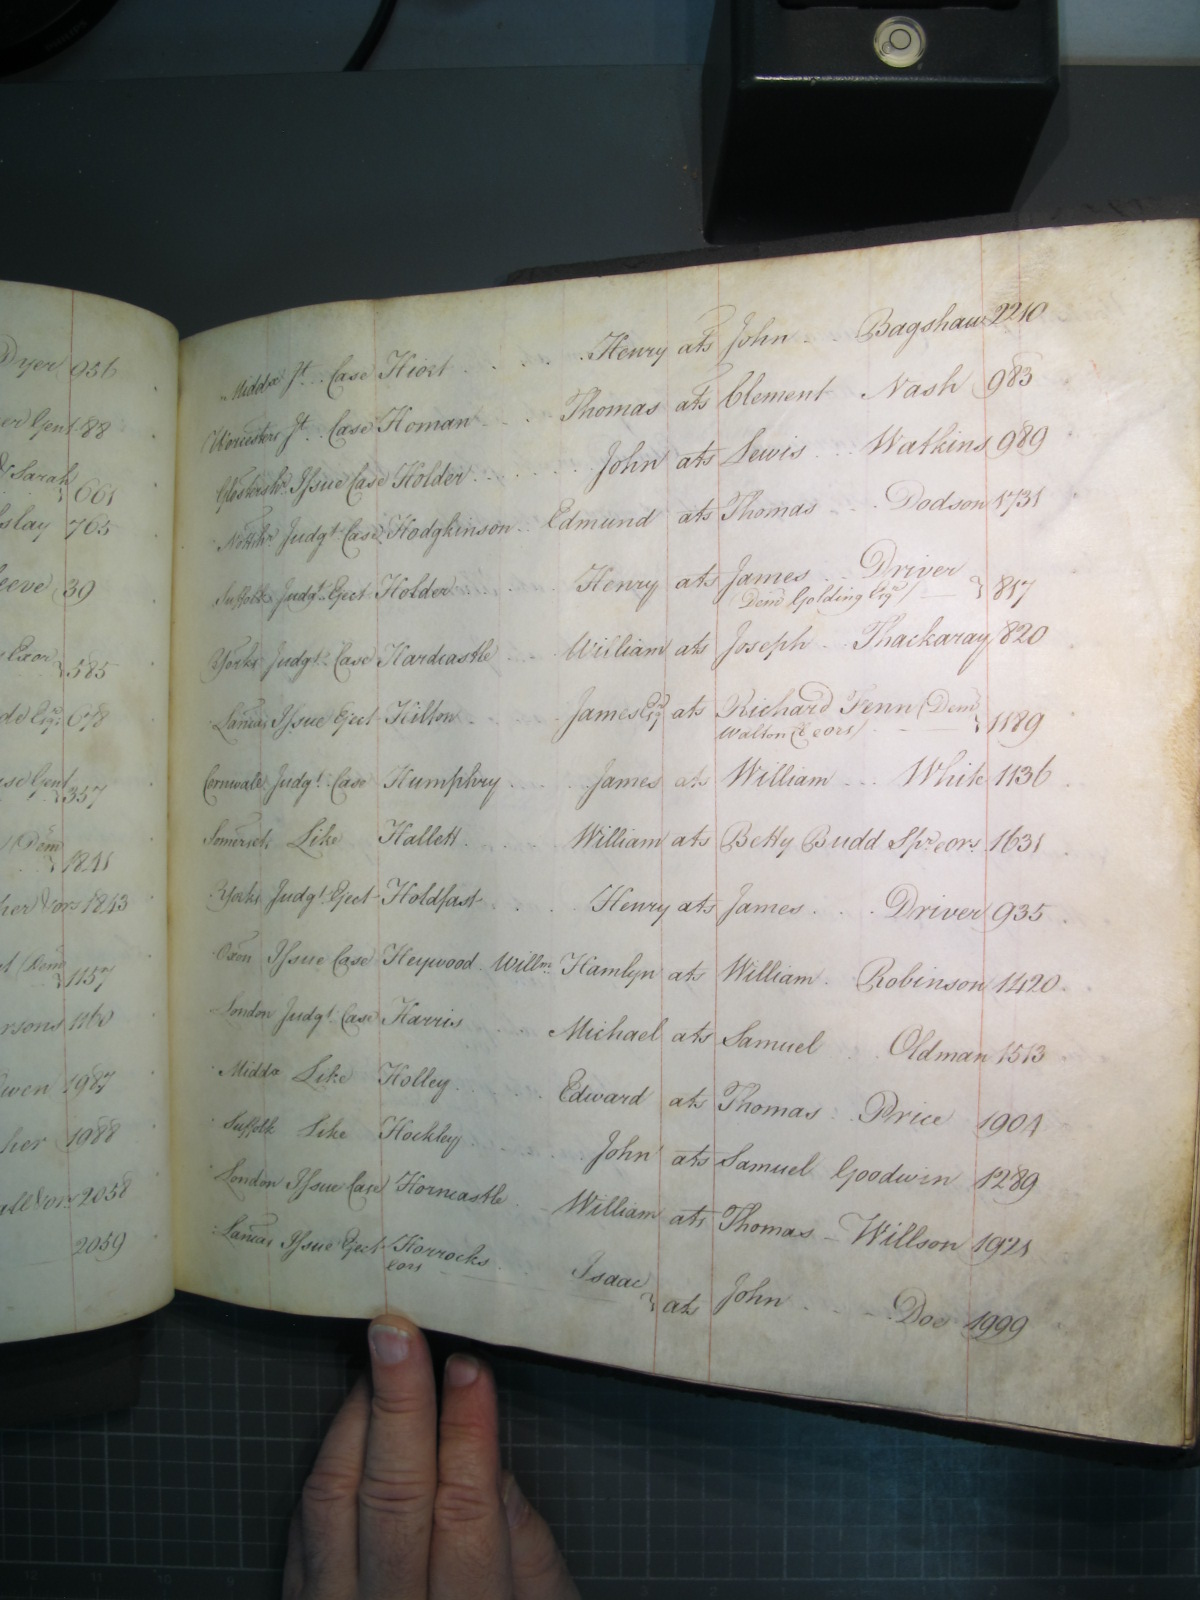 Dyer 956
er Gent 188
& Sarah
661
slay 765
eeve 39
Exor
585
de Esqr. 678
se Gent
357
/ Dem
1841
her & ors 1843
t / Dem
1157
rsons 1160
wen 1987
her 1988
all & ors 2058
2059
Middx Jt. Case Hiort Henry ats John Bagshaw 2210
Worcesters Jt. Case Homan Thomas ats Clement Nash 983
Glostershr. Issue Case Holder John ats Lewis Watkins 989
Nottshr Judgt. Case Hodgkinson Edmund ats Thomas Dodson 1731
Suffolk Judgt. Eject Holder Henry ats James Driver
Dem Golding Esqr / 817
Yorks Judgt. Case Hardcastle William ats Joseph Thackaray 820
Lancas Issue Eject Hilton James Esqr ats Richard Fenn (Dem
Walton & ors / 1189
Cornwale Judgt. Case Humphry James ats William White 1136
Somerset Like Hallett William ats Betty Budd Spr. & ors. 1631
Yorks Judgt. Eject Holdfast Henry ats James Driver 935
Oxon Issue Case Heywood Willm. Hamlyn ats William Robinson 1420
London Judgt. Case Harris Michael ats Samuel Oldman 1513
Middx Like Holley Edward ats Thomas Price 1904
Suffolk Like Hockley John ats Samuel Goodwin 1289
London Issue Case Horncastle William ats Thomas Willson 1921
Lancas Issue Eject Horrocks Isaac
& ors ats John Doe 1999